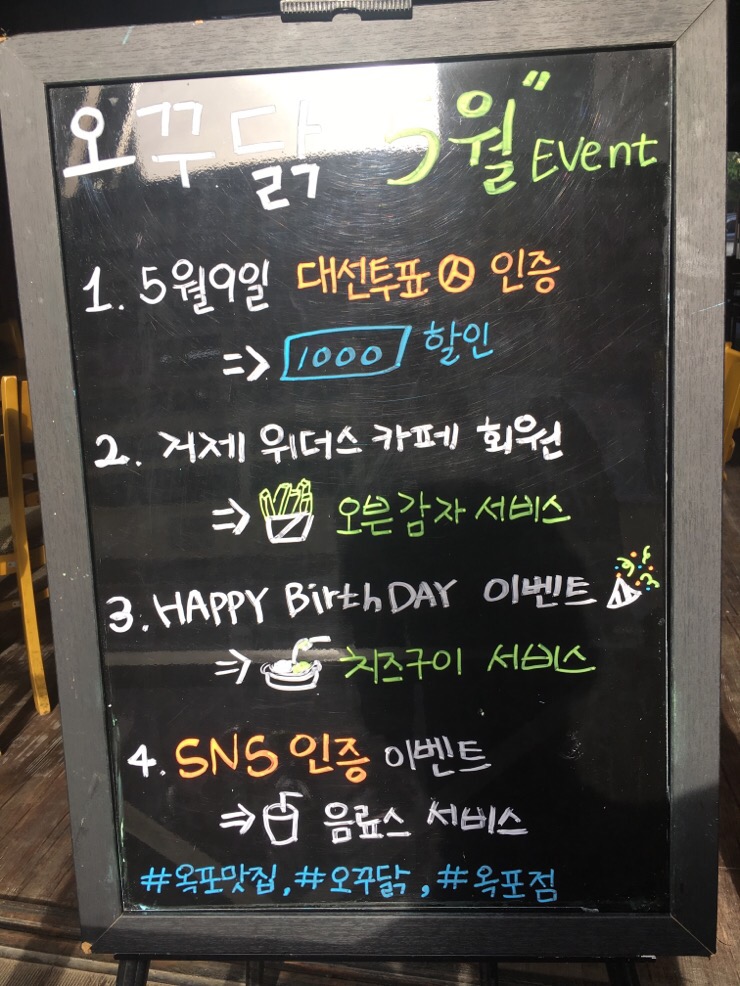 오꾸닭 "5월" Event
1. 5월9일 대선투표 인증
⇒ 1000 할인
2. 거제 위더스 카페 회원
⇒ 오븐감자 서비스
3. HAPPY BirthDAY 이벤트
⇒ 치즈구이 서비스
4. SNS 인증 이벤트
⇒ 음료스 서비스
#옥포맛집, #오꾸닭, #옥포점